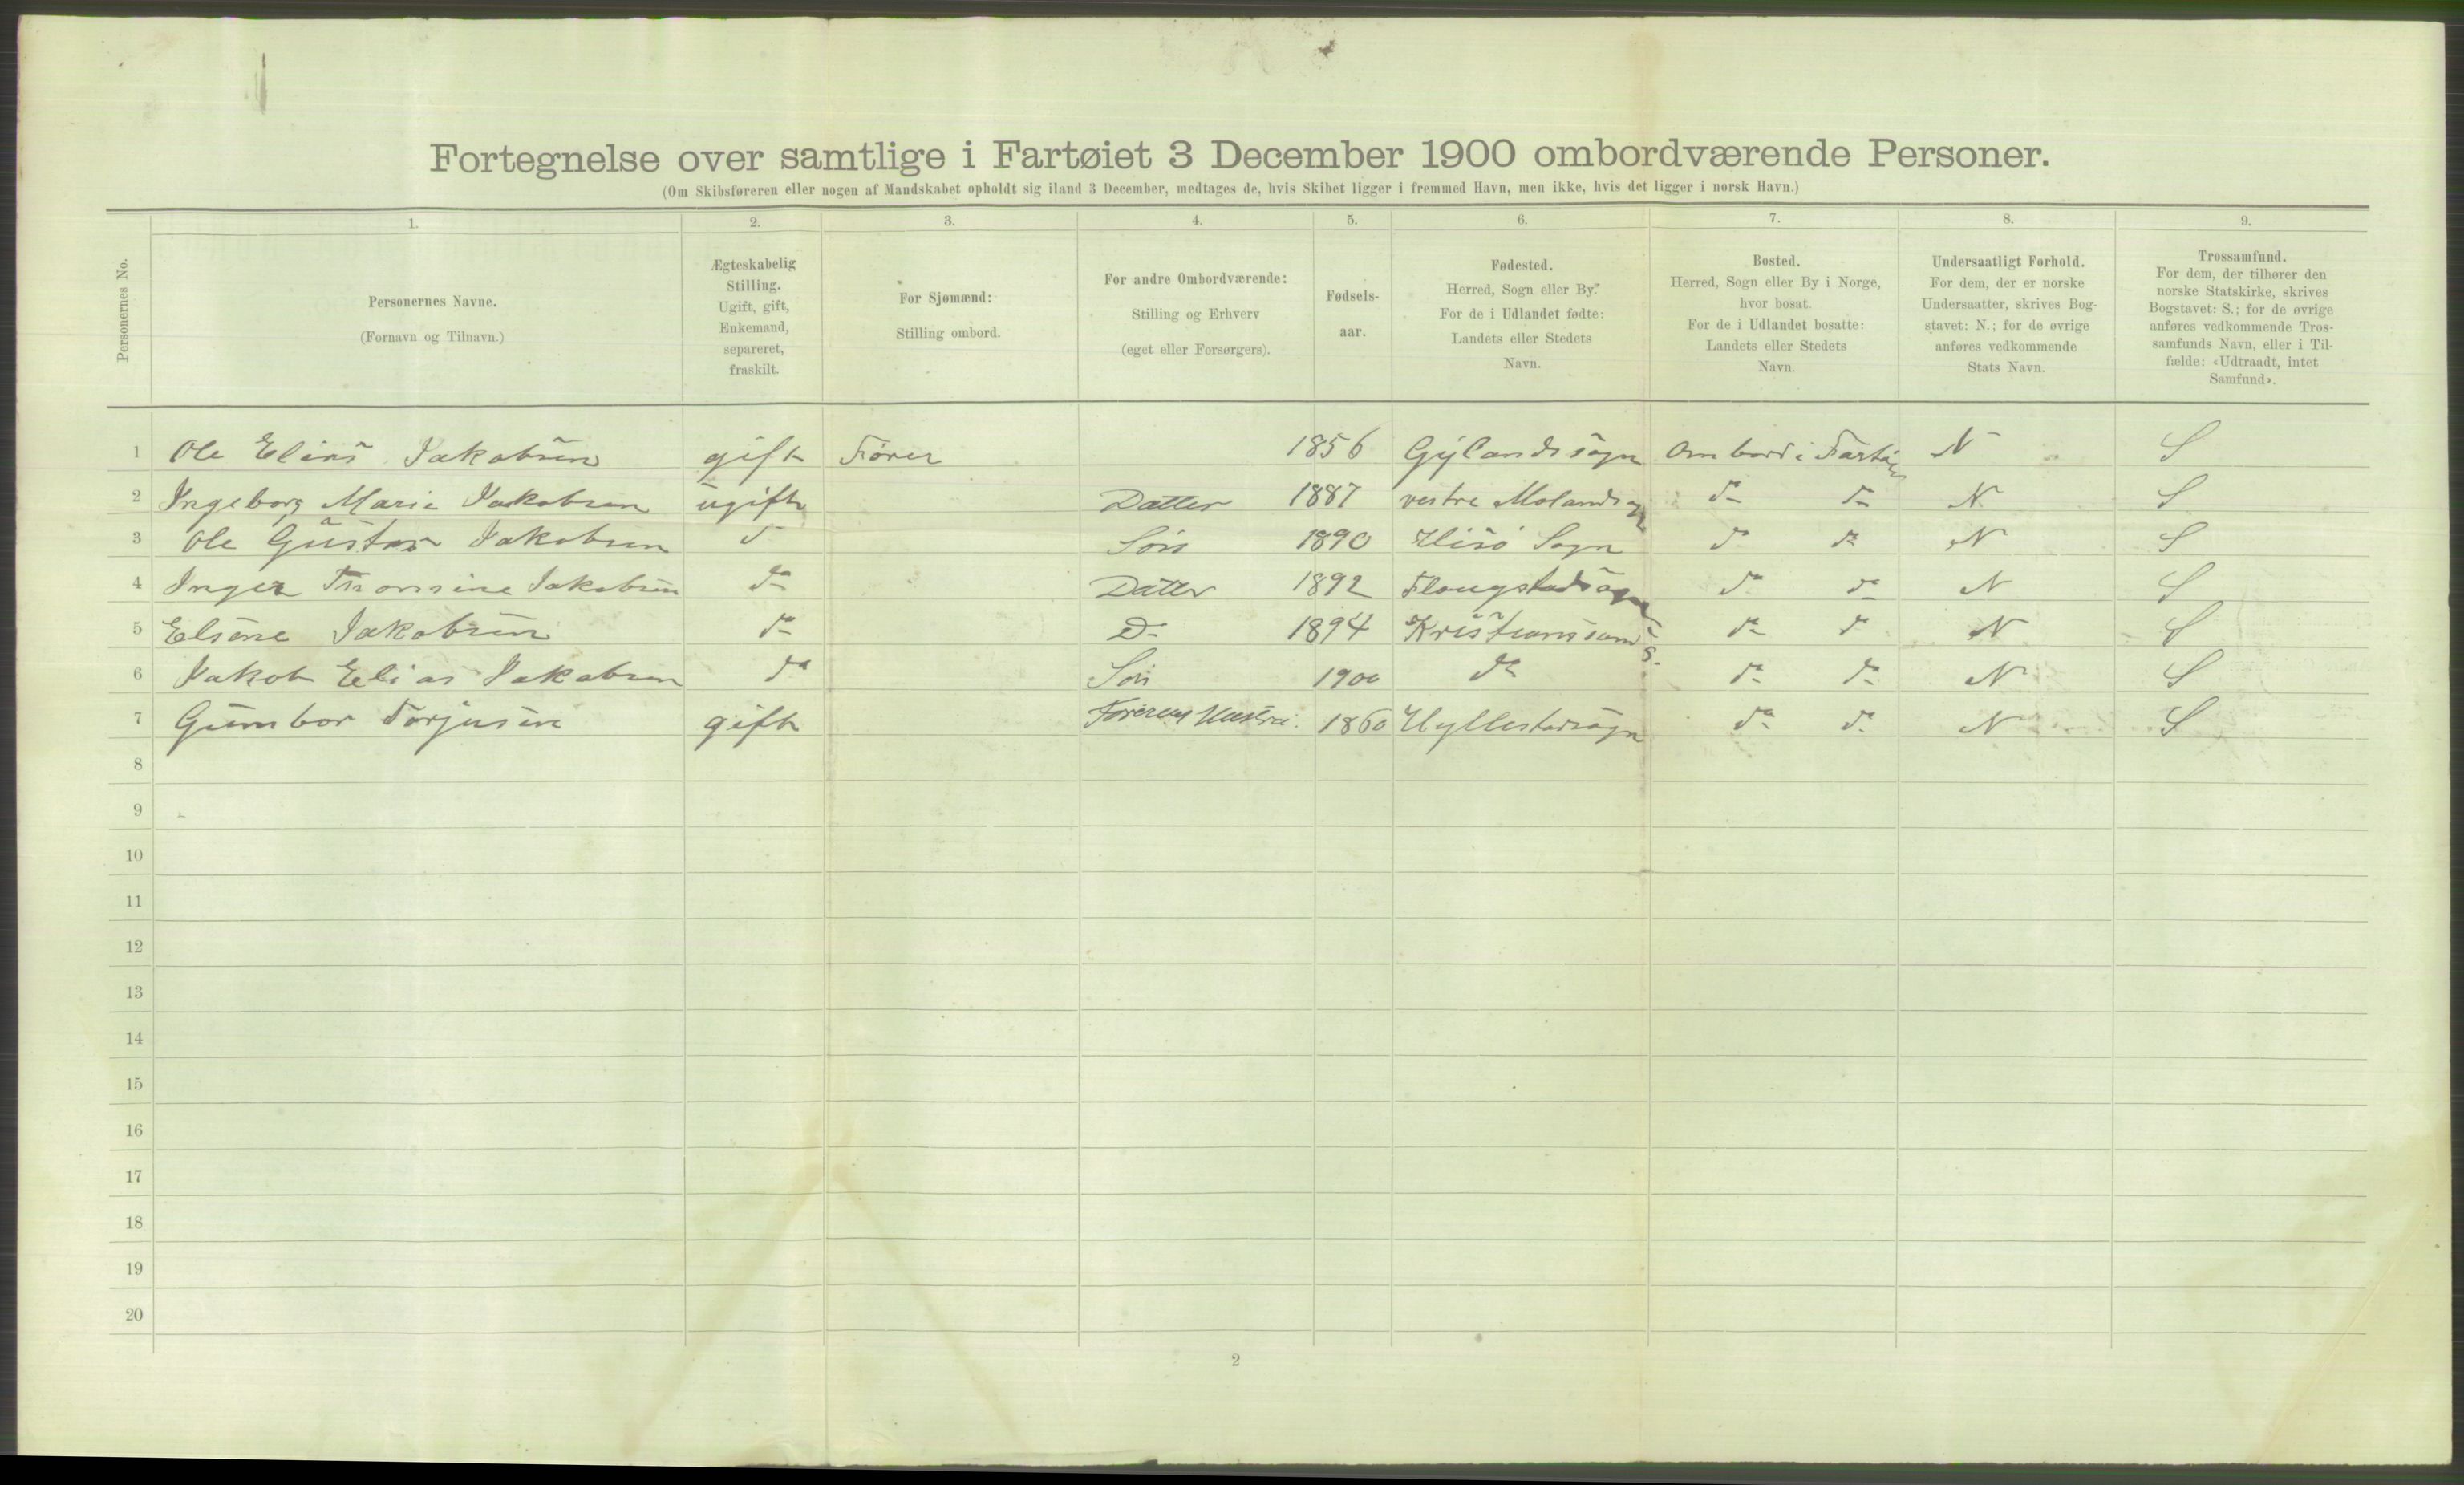 Fortegnelse over samtlige i Fartøiet 3 December 1900 ombordværende Personer.
(Om Skibsføreren eller nogen af Mandskabet opholdt sig iland 3 December, medtages de, hvis Skibet ligger i fremmed Havn, men ikke, hvis det ligger i norsk Havn.)
Personernes No.
1. 2. 3. 4. 5. 6. 7. 8. 9.
Personernes Navne.
(Fornavn og Tilnavn.)
Ægteskabelig
Stilling.
Ugift, gift,
Enkemand,
separeret,
fraskilt.
For Sjømænd:
Stilling ombord.
For andre Ombordværende:
Stilling og Erhverv
(eget eller Forsørgers).
Fødsels-
aar.
Fødested.
Herred, Sogn eller By.
For de i Udlandet fødte:
Landets eller Stedets
Navn.
Bosted.
Herred, Sogn eller By i Norge,
hvor bosat.
For de i Udlandet bosatte:
Landets eller Stedets
Navn.
Undersaatligt Forhold.
For dem, der er norske
Undersaatter, skrives Bog-
stavet: N.; for de øvrige
anføres vedkommende
Stats Navn.
Trossamfund.
For dem, der tilhører den
norske Statskirke, skrives
Bogstavet: S.; for de øvrige
anføres vedkommende Tros-
samfunds Navn, eller i Til-
fælde: «Udtraadt, intet
Samfund».
1 Ole Elias Jakobsen gift Fører 1856 Gylandssogn Ombord i Fartøiet N S
2 Ingeborg Marie Jakobsen ugift Datter 1887 vestre Molandsogn do do N S
3 Ole Gustav Jakobsen do Søn 1890 Hisö Sogn do do N S
4 Inger Thomsine Jakobsen do Datter 1892 do do N S
5 Elsine Jakobsen do Do 1894 Kristianssand S. do do N S
6 Jakob Elias Jakobsen do Søn 1900 do do do N S
7 Gumbor Torjusen gift Førerens Hustru. 1860 Hyllestadsogn do do N S
8
9
10
11
12
13
14
15
16
17
18
19
20
2